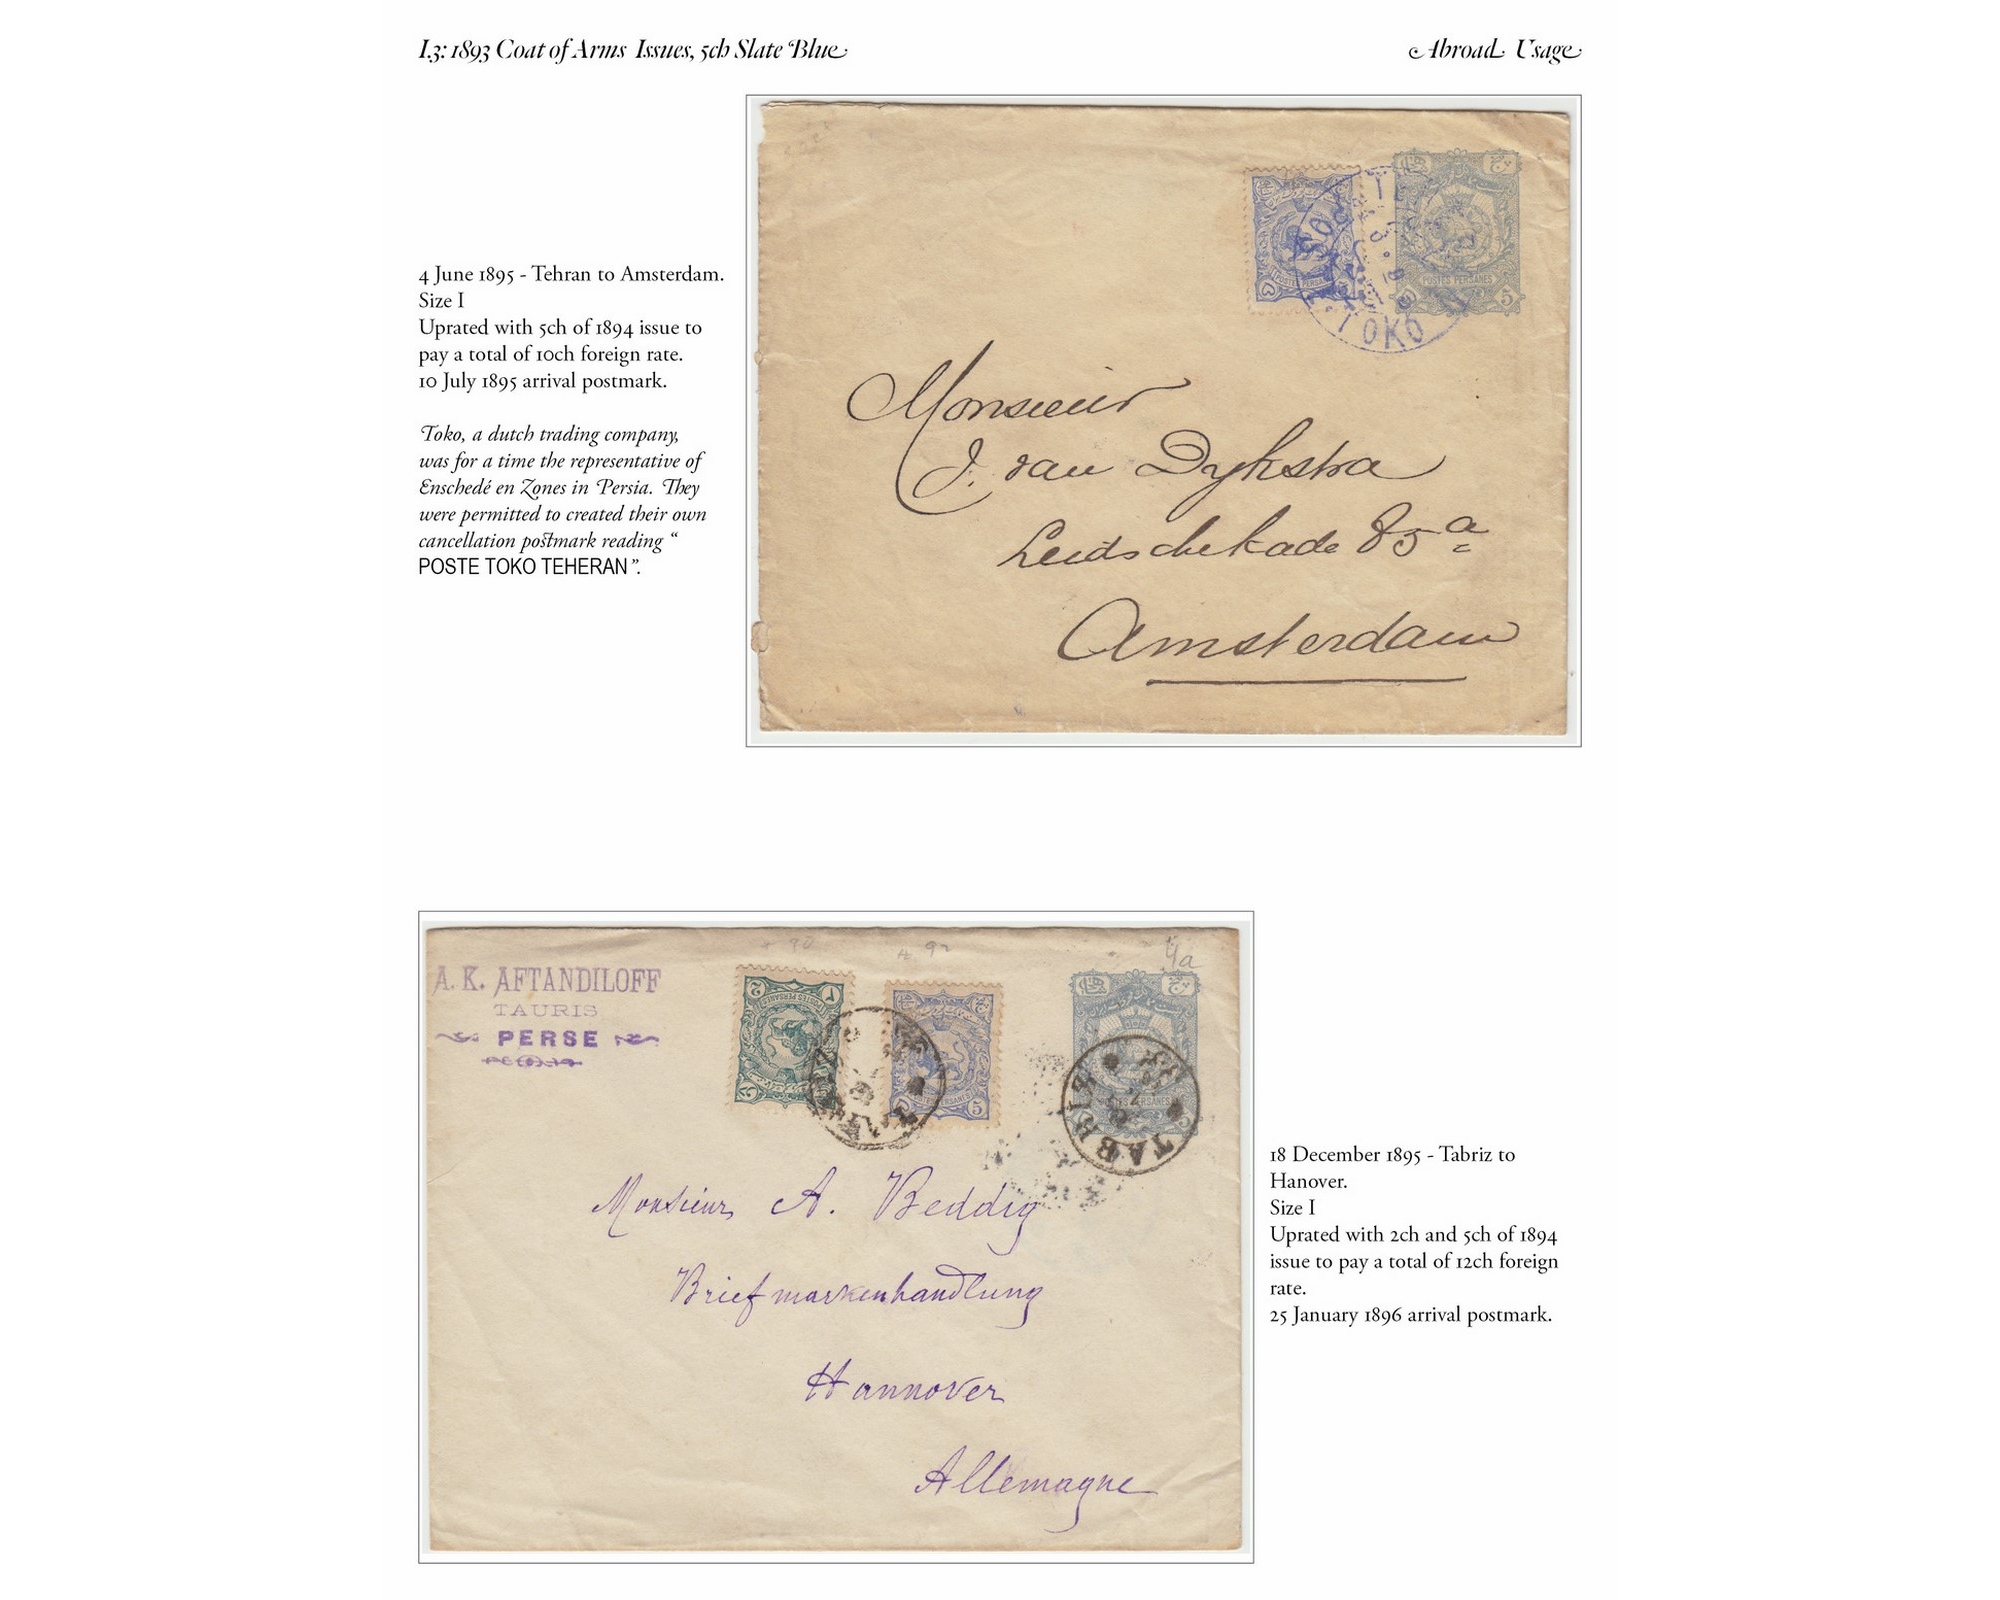 I.3: 1893 Coat of Arms Issues, 5ch Slate Blue
Abroad Usage
4 June 1895 - Tehran to Amsterdam.
Size I
Uprated with 5ch of 1894 issue to
pay a total of 10ch foreign rate.
10 July 1895 arrival postmark.
Toko, a dutch trading company,
was for a time the representative of
Enschedé en Zones in Persia. They
were permitted to created their own
cancellation postmark reading “
POSTE TOKO TEHERAN”.
POSTES PERSANES
5
TOKO
Monsieur
J. van Dykstra
Leidschekade 85a
Amsterdam
A. K. AFTANDILOFF
TAURIS
PERSE
4a
2
POSTES PERSANES
POSTES PERSANES
5
TABRIZ
Monsieur A. Beddig
Briefmarkenhandlung
Hannover
Allemagne
18 December 1895 - Tabriz to
Hanover.
Size I
Uprated with 2ch and 5ch of 1894
issue to pay a total of 12ch foreign
rate.
25 January 1896 arrival postmark.